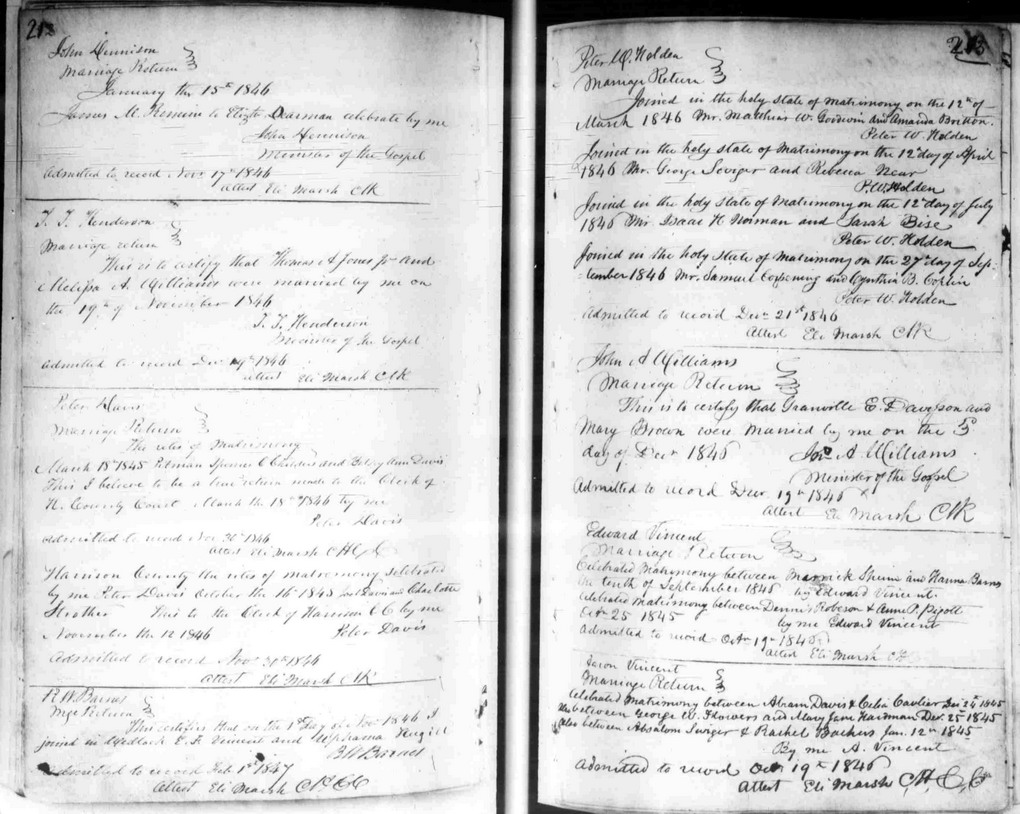 212
John Hennison
Marriage Return
January the 15th 1846
James M. to Elizth celebrate by me
John Hennison
Minister of the Gospel
admitted to record Novr 17th 1846
attest Eli Marsh Clk
T. T. Henderson
Marriage return
This is to certify that Thomas A Jones Jr and
Melissa A. Williams were married by me on
the 19th of November 1846
T. T. Henderson
Minister of the Gospel
admitted to record Decr 1846
attest Eli Marsh Clk
Peter Davis
Marriage Return
The rites of Matrimony
March 18th 1845 and Betsy Ann Davis
This I believe to be a true return made to the Clerk of
H. County Court March the 18th 1846 by me
Peter Davis
admitted to record Novr 30th 1846
attest Eli Marsh C H C C
Harrison County the rites of matremony selebrated
by me Peter Davis October the 16th 1845 Davis and Charlotte
Strother This to the Clerk of Harrison C C by me
November the 12 1846 Peter Davis
Admitted to record Novr 1846
Attest Eli Marsh Clk
R W Barnes
Mge Return
This certifies that on the 1st Day of Nov 1846 I
joined in Wedlock E. F. Vincent and Nugill
admitted to record Feb 1st 1847
Attest Eli Marsh C H C C
213
Peter W. Holden
Marriage Return
Joined in the holy state of Matrimony on the 12th of
March 1846 Mr. Matthias W. Goodwin and Amanda Britton.
Peter W. Holden
Joined in the holy state of Matrimony on the 12th day of April
1846 Mr. George Swiger and Rebecca Near
P. W. Holden
Joined in the holy state of Matrimony on the 12th day of July
1846 Mr. Isaac H. Norman and Sarah Bise
Peter W. Holden
Joined in the holy state of Matrimony on the 27th day of Sep-
tember 1846 Mr. Samuel and Cynthia B. Coplin
Peter W. Holden
admitted to record Decr 21st 1846
Attest Eli Marsh Clk
John A Williams
Marriage Return
This is to certify that Granville E. Davisson and
Mary Brown were Married by me on the 3
day of Decr 1846 Jno A Williams
Minister of the Gospel
Admitted to record Decr 19th 1846
attest Eli Marsh Clk
Edward Vincent
Marriage Return
Celebrated Matrimony between and Hanna Barns
the tenth of September 1846 by Edward Vincent
Celebrated Matrimony between Dennis Robeson & Anne P. Pigott
Octr 25 1845 by me Edward Vincent
admitted to record Octr 19th 1846
attest Eli Marsh Clk
Vincent
Marriage Return
Celebrated Matrimony between Abram Davis & Celia 1845
Also between George W. Flowers and Mary Jane Hardman Dec 25 1845
Also between Absalom Swiger & Rachel Jan. 12th 1845
By me A. Vincent
admitted to record Octr 19th 1846
attest Eli Marsh C, H, C, C